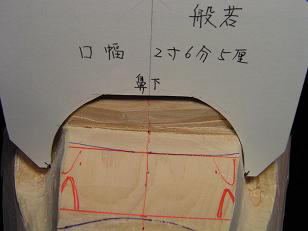 般若
口幅 2寸6分5厘
鼻下